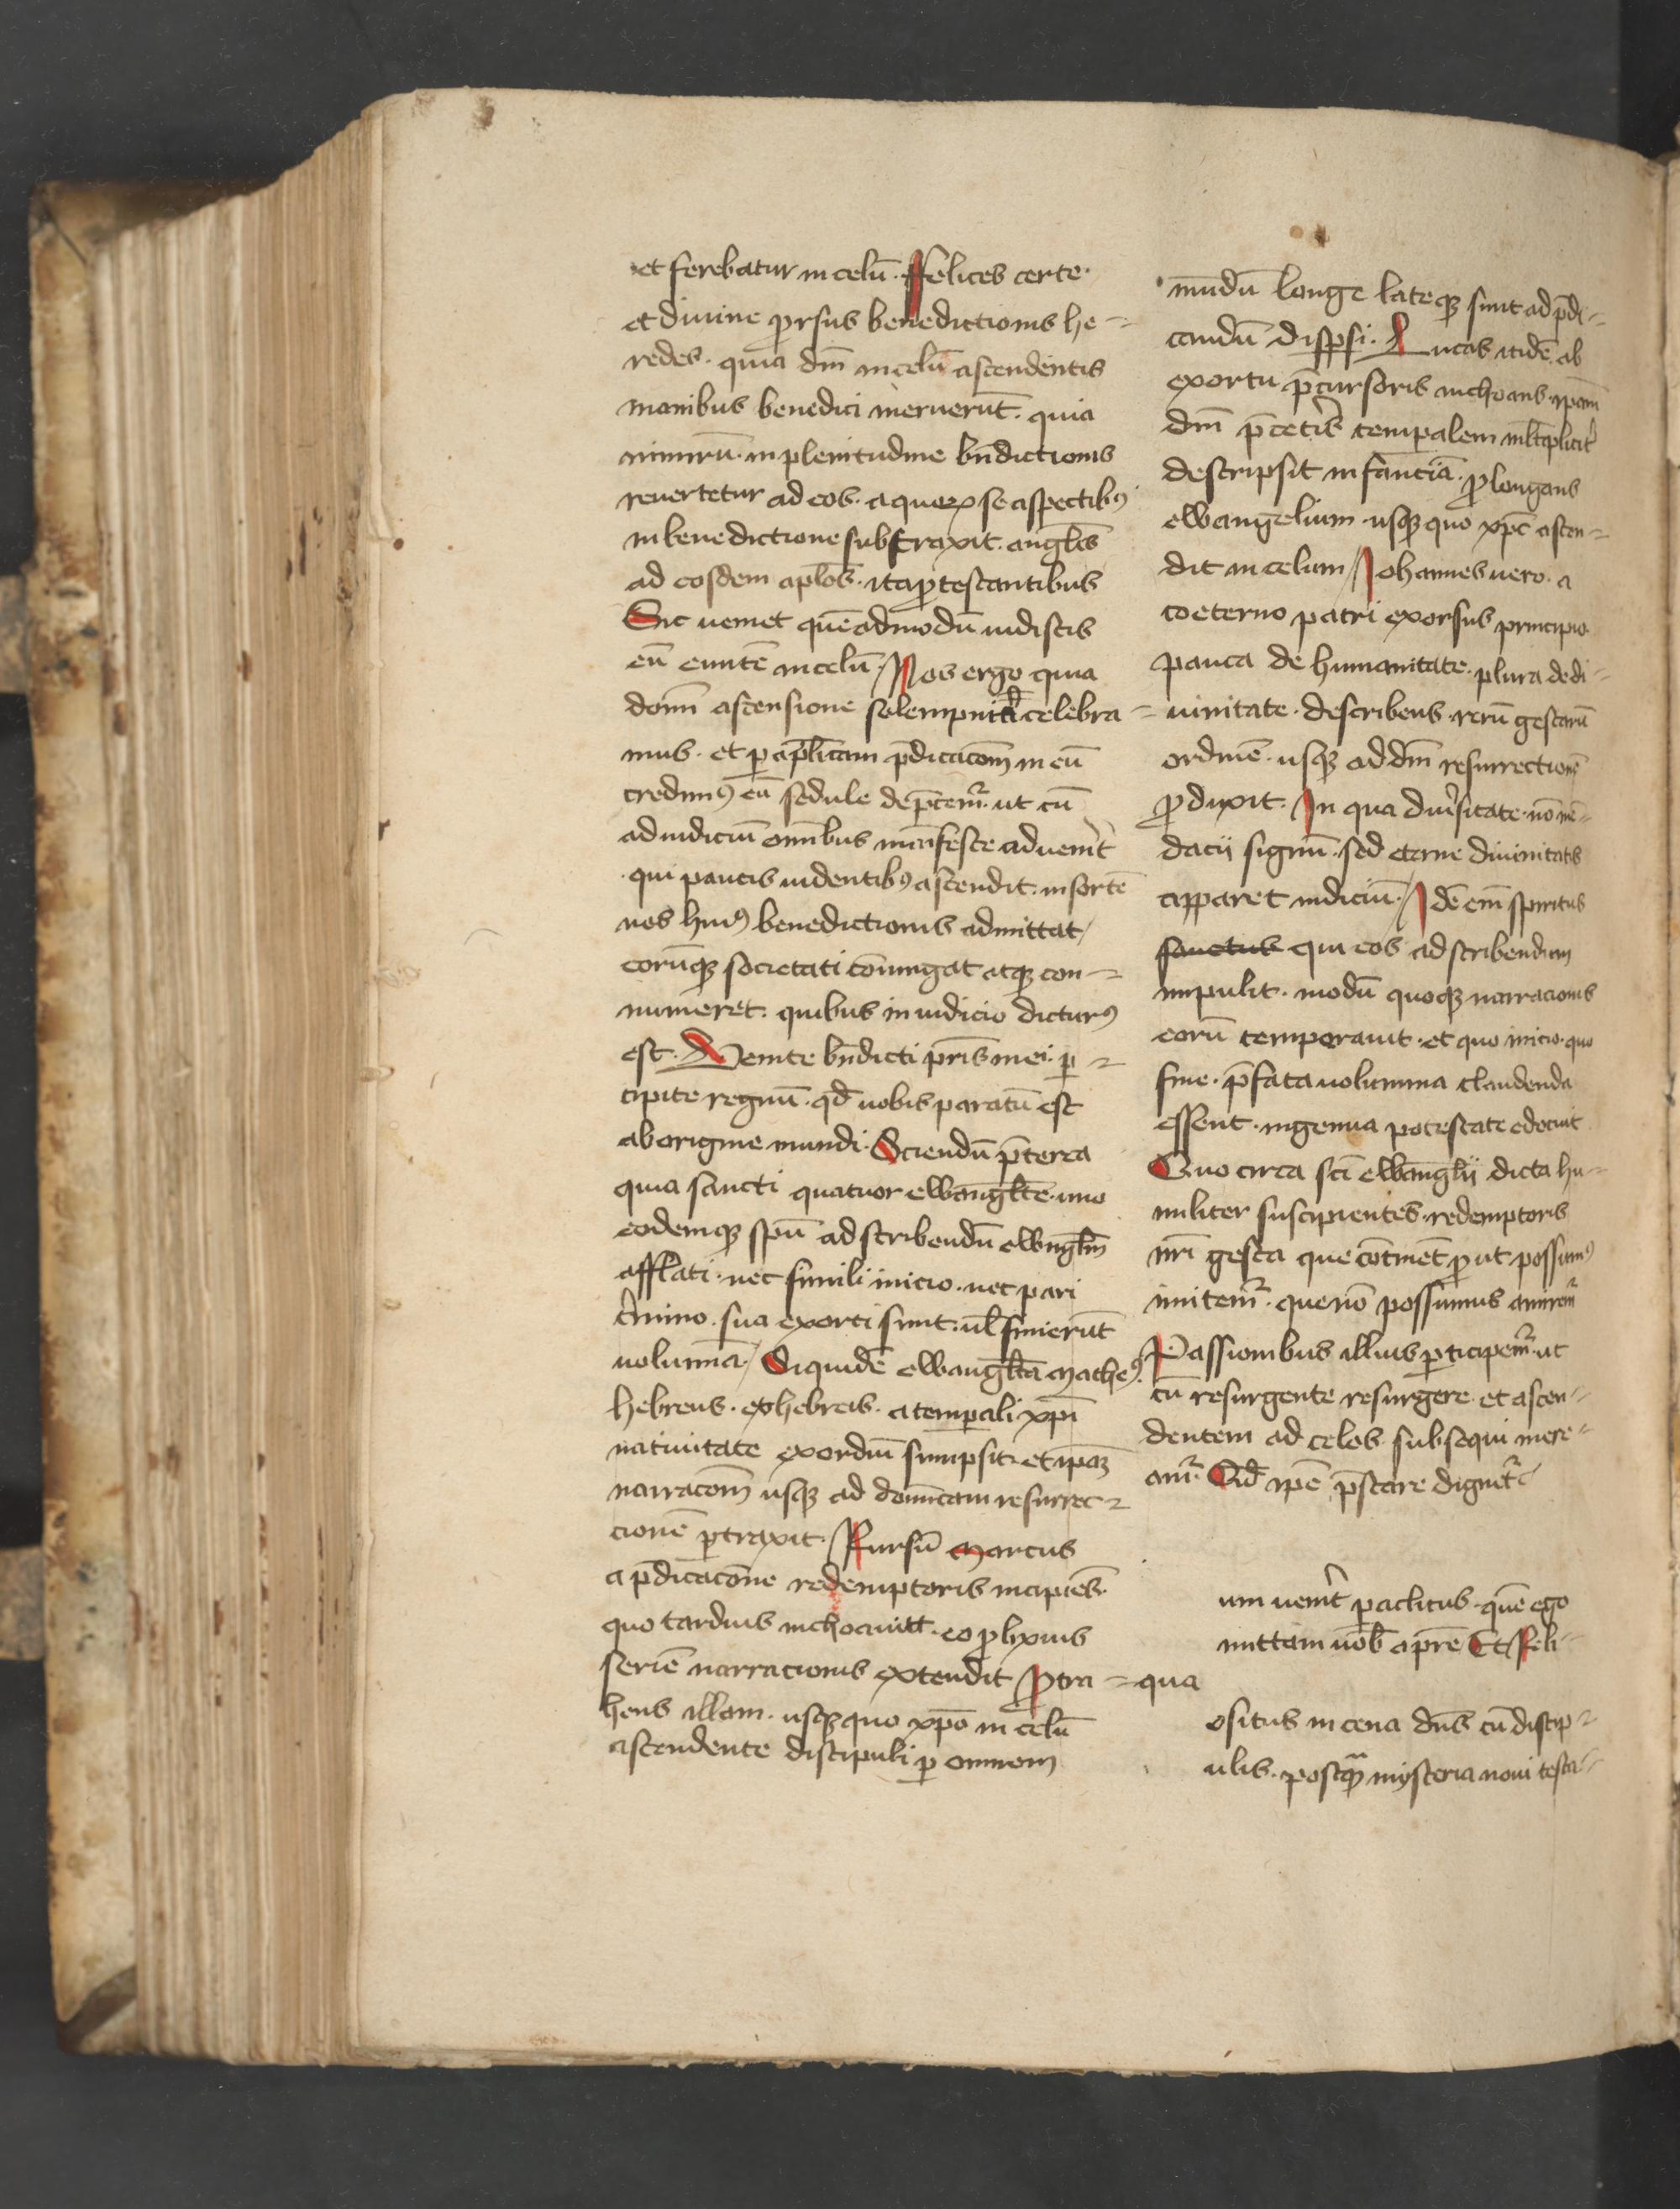 et ferebatur in celū. Felices certe.
et diuine ꝓrsus benedictionis he⸗
redes. quia dm̄ in celū ascendentis
manibus benedici meruerūt. quia
nimirū. in plenitudine bn̄dictionis
reuertetur ad eos. a quoꝝ se aspectibꝰ
in benedictione subtraxit. angl̄is
ad eosdem apl̄os. ita ꝓtestantibus
Sic ueniet quēadmodū uidistis
eū euntē in celū. Nos ergo quia
domī ascensione solempnit̄ celebra⸗
mus. et ꝑ apl̄icam p̄dicacōm in eū
credimꝰ eū sedule dep̄cemr̄. ut cū
ad iudiciū om̄ibus manifeste aduenīt
qui paucis uidentibꝰ ascendit. in sortē
nos huiꝰ benedictionis admittat/
eorūqꝫ societati cōiungat atqꝫ con⸗
numeret. quibus in iudicio dicturꝰ
est. Venite bn̄dicti pr̄is mei. ꝑ⸗
cipite regnū. qd̄ uobis paratū est
ab origine mundi. Sciendū p̄terea
quia sancti quatuor ewangl̄te. uno
eodemqꝫ spū ad scribendū ewangl̄m
afflati. nec simili inicio. nec pari
t̄mino. sua exorti sunt. ul̄ finierūt
uolumina/ Siquidē ewangl̄ta Matheꝰ.
hebreus. ex hebreis. a temꝑali xp̄i
natiuitate exordiū sumpsit. et ip̄aꝫ
narracōm usqꝫ ad domīcam resurrec⸗
cionē ꝑtraxit. Rursū Marcus
a p̄dicacōne redemptoris incipiēs.
quo tardius inchoauit. eo ꝓlixius
seriē narracionis extendit ꝓtra⸗
hens illam. usqꝫ quo xp̄o in celū
ascendente discipuli ꝑ omnem
mūdū longe lateqꝫ sunt ad p̄di⸗
candū disꝑsi. Lucas itidē ab
exortu p̄cursoris inchoans. ip̄am
dm̄ p̄ cet̄is temꝑalem ml̄tiplicit̄
descripsit infanciā. ꝓlongans
ewangelium. usqꝫ quo xp̄c ascen⸗
dit in celum/ Johannes uero. a
coeterno patri exorsus principio.
pauca de humanitate. plura de di⸗
uinitate. describens. rerū gestarū
ordinē. usqꝫ ad dm̄ resurrectionē
ꝓduxit. In qua diu̓sitate. nō mē⸗
dacii signū. sed eterne diuinitatis
apparet indiciū. Idē em̄ spiritus
sanctus qui eos ad scribendum
impulit. modū quoqꝫ narracionis
eorū temperauit. et quo inicio. quo
fine. p̄fata uolumina claudenda
essent. ingenua potestate edocuit
Quo circa sc̄i ewangl̄ii dicta hu⸗
militer suscipientes. redemptoris
nr̄i gesta que cōtinēt ꝓut possumꝰ
imitemr̄. que nō possumus amirem̄
Passionibus illius ꝑticipemr̄. ut
cū resurgente resurgere. et ascen⸗
dentem ad celos subsequi mere⸗
amr̄. Qd̄ ip̄e p̄stare dignetr̄
um uenīt paclitus. quē ego
mittam uob̄ a pr̄e Et Reli⸗
qua
ositus in cena dn̄s cū discip⸗
ulis. postqꝫ̄ mysteria noui testa⸗